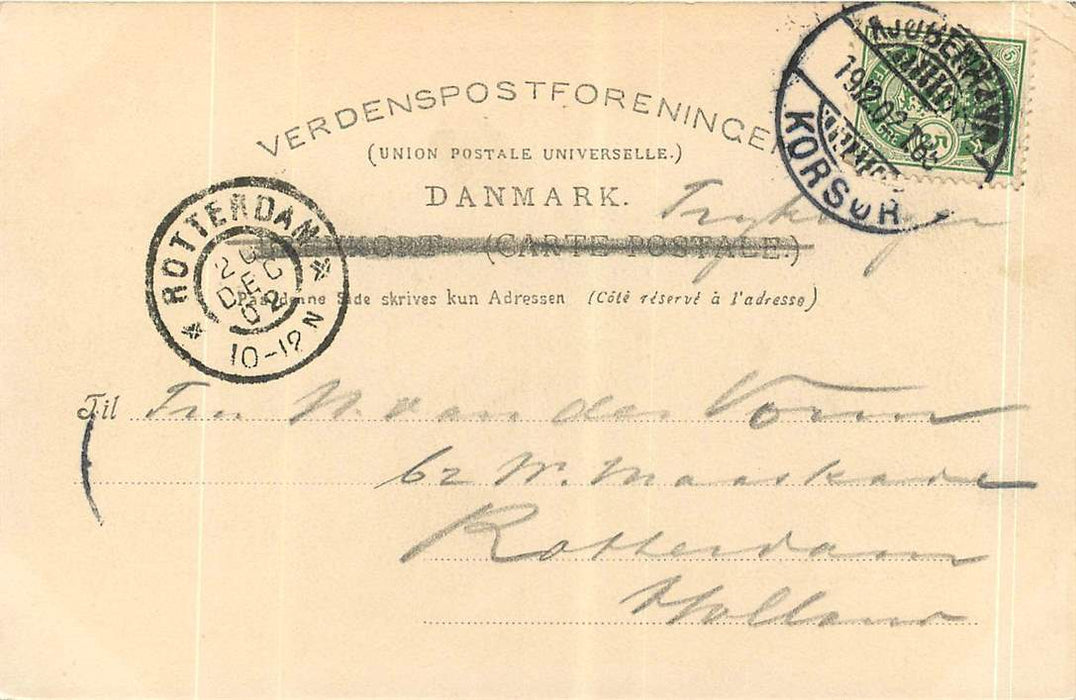 VERDENSPOSTFORENINGEN
(UNION POSTALE UNIVERSELLE.)
DANMARK.
(CARTE POSTALE.)
Paa denne Side skrives kun Adressen (Côté réservé à l'adresse)
KJØBENHAVN
19.12.02
KORSØR
5
5
ROTTERDAM
20
DEC
02
10-12 N
Til W. van der Vorm
62 W. Maaskade
Rotterdam
Holland